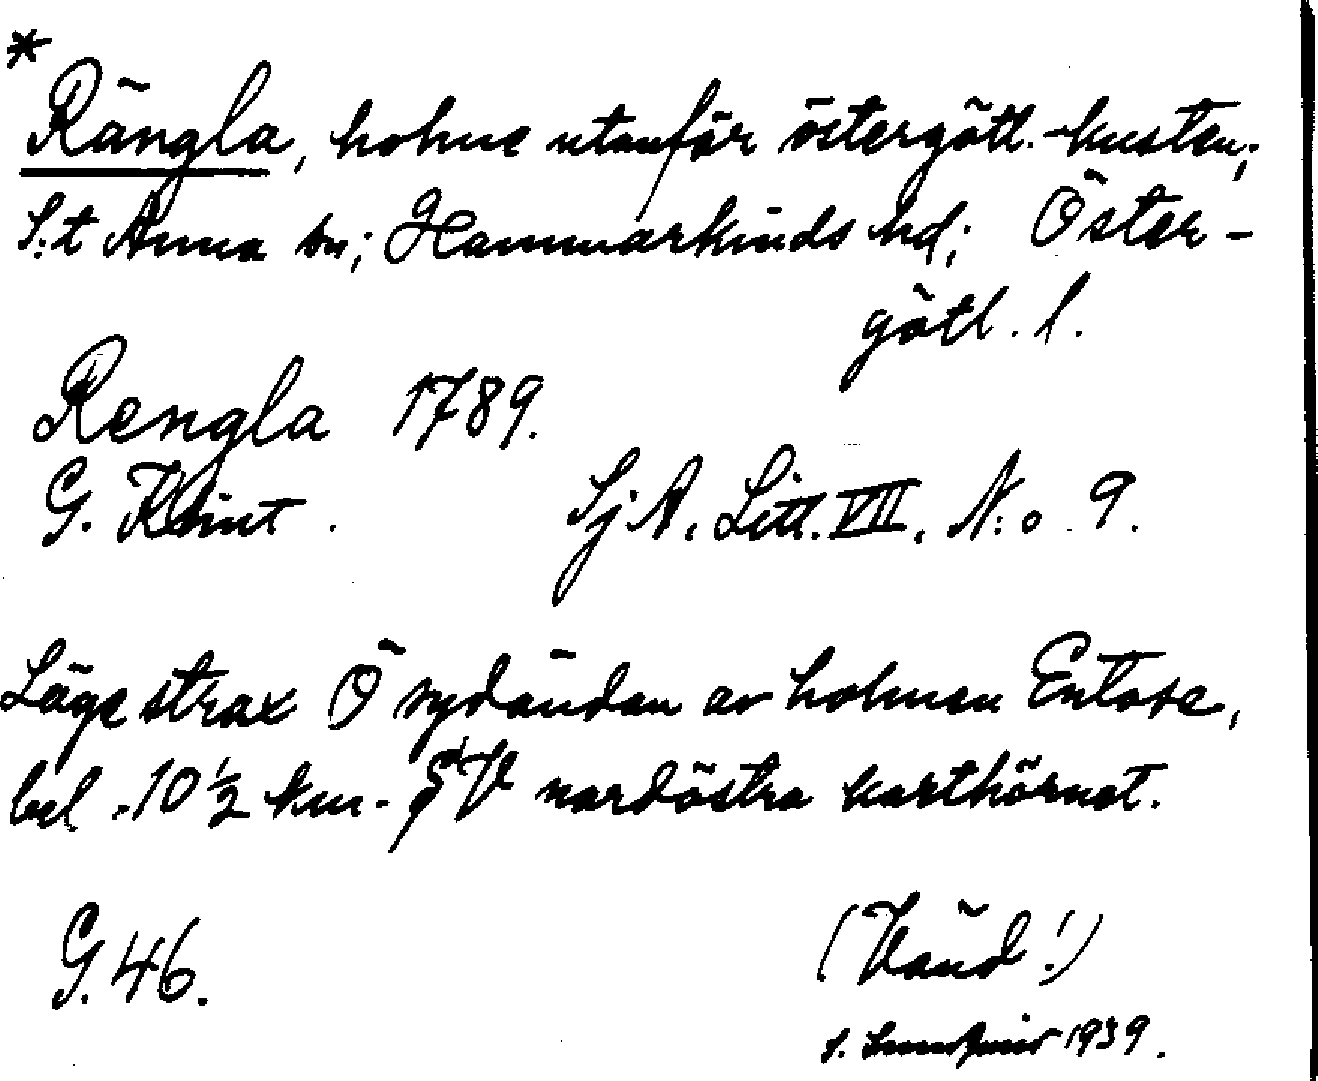 *
Rängla, holme utanför östergötl.-kusten;
S:t Anna sn; Hammarkinds hd; Öster-
götl. l.
Rengla 1789.
G. Klint. SjA. Litt. VII. N:o 9.
Läge strax Ö sydändan av holmen
bel. 10 1/2 km. SV nordöstra karthörnet.
G. 46.
(Vänd!)
S. 1939.